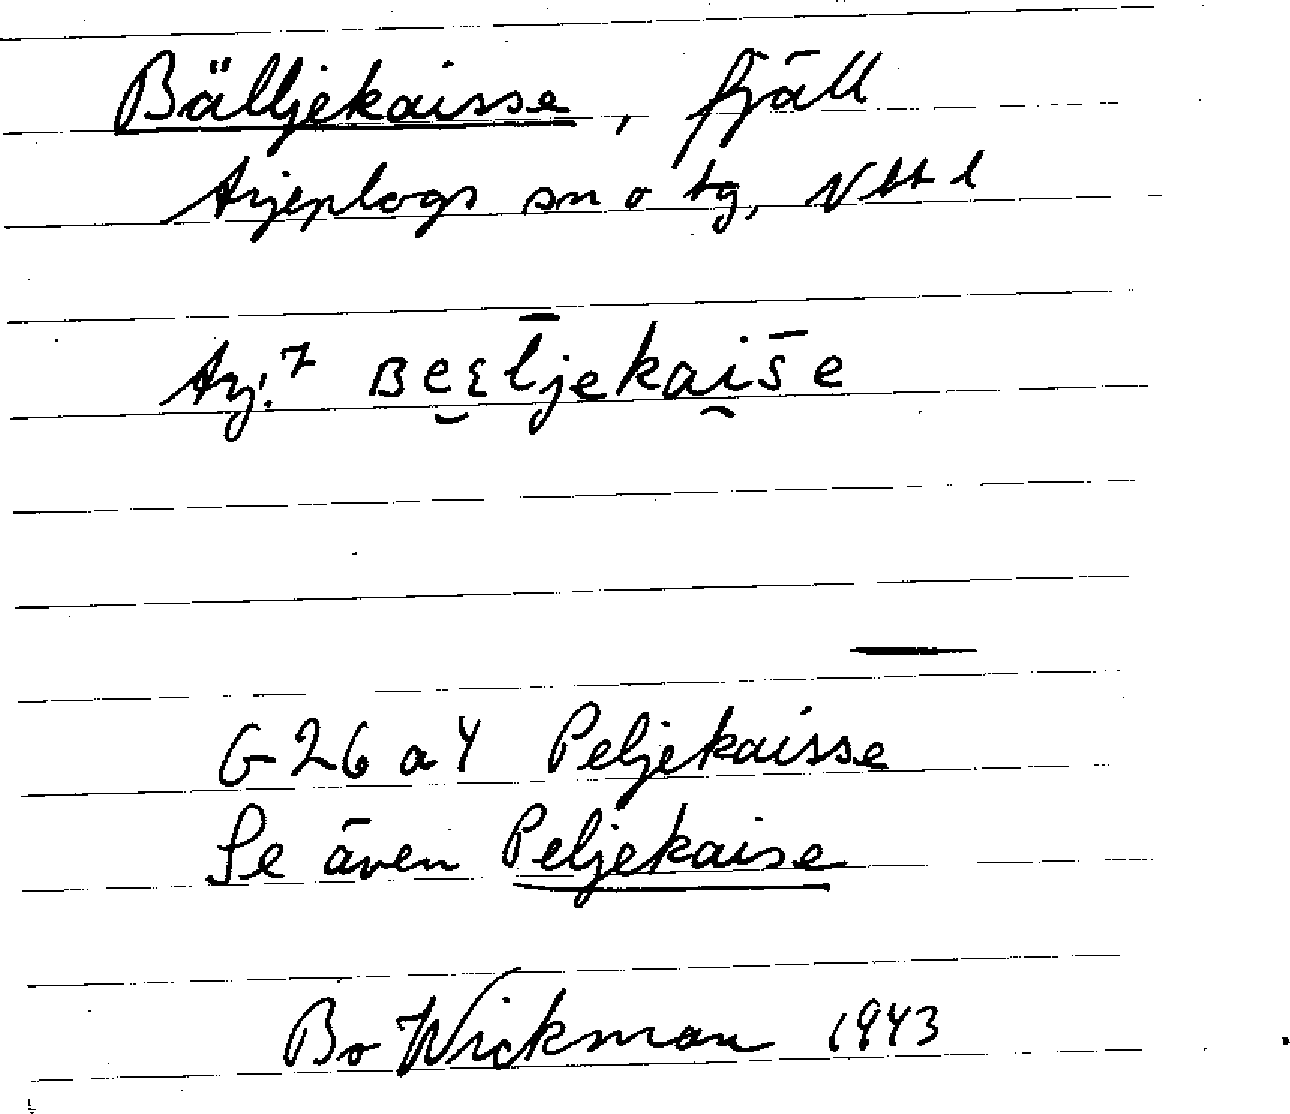 Bälljekaisse, fjäll
Arjeplogs sn o tg, Nbtl
Arj.⁷ ʙe̮ɛl̄jekai̯s̄e
G 26 a 4 Peljekaisse
Se även Peljekaise
Bo Wickman 1943